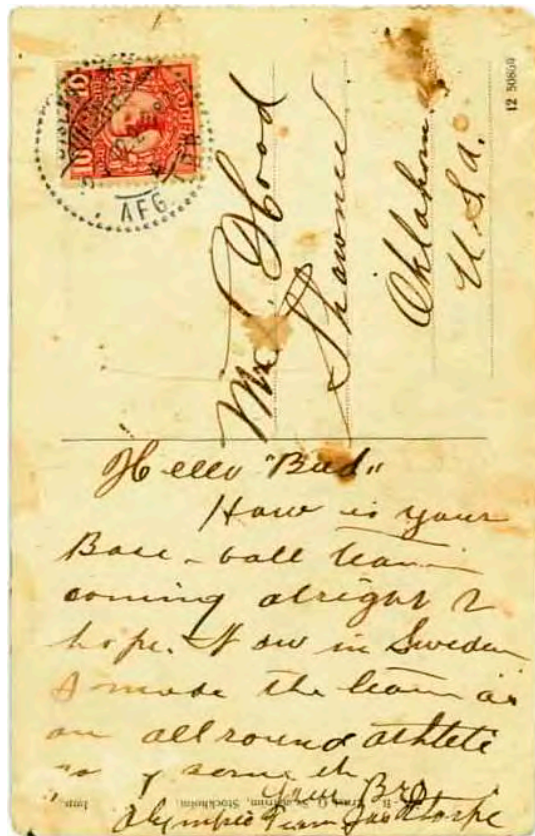 10
10
AFG
12 50859
Mr. L. Hood
Shawnee
Oklahom
U. S. A.
Hello "Bud"
How is your
Base-ball team
coming alright I
hope. Now in Sweden
I made the team as
an allround athlete
your Bro
Olympic Team Jas Thorpe
Imp.
Stockholm,